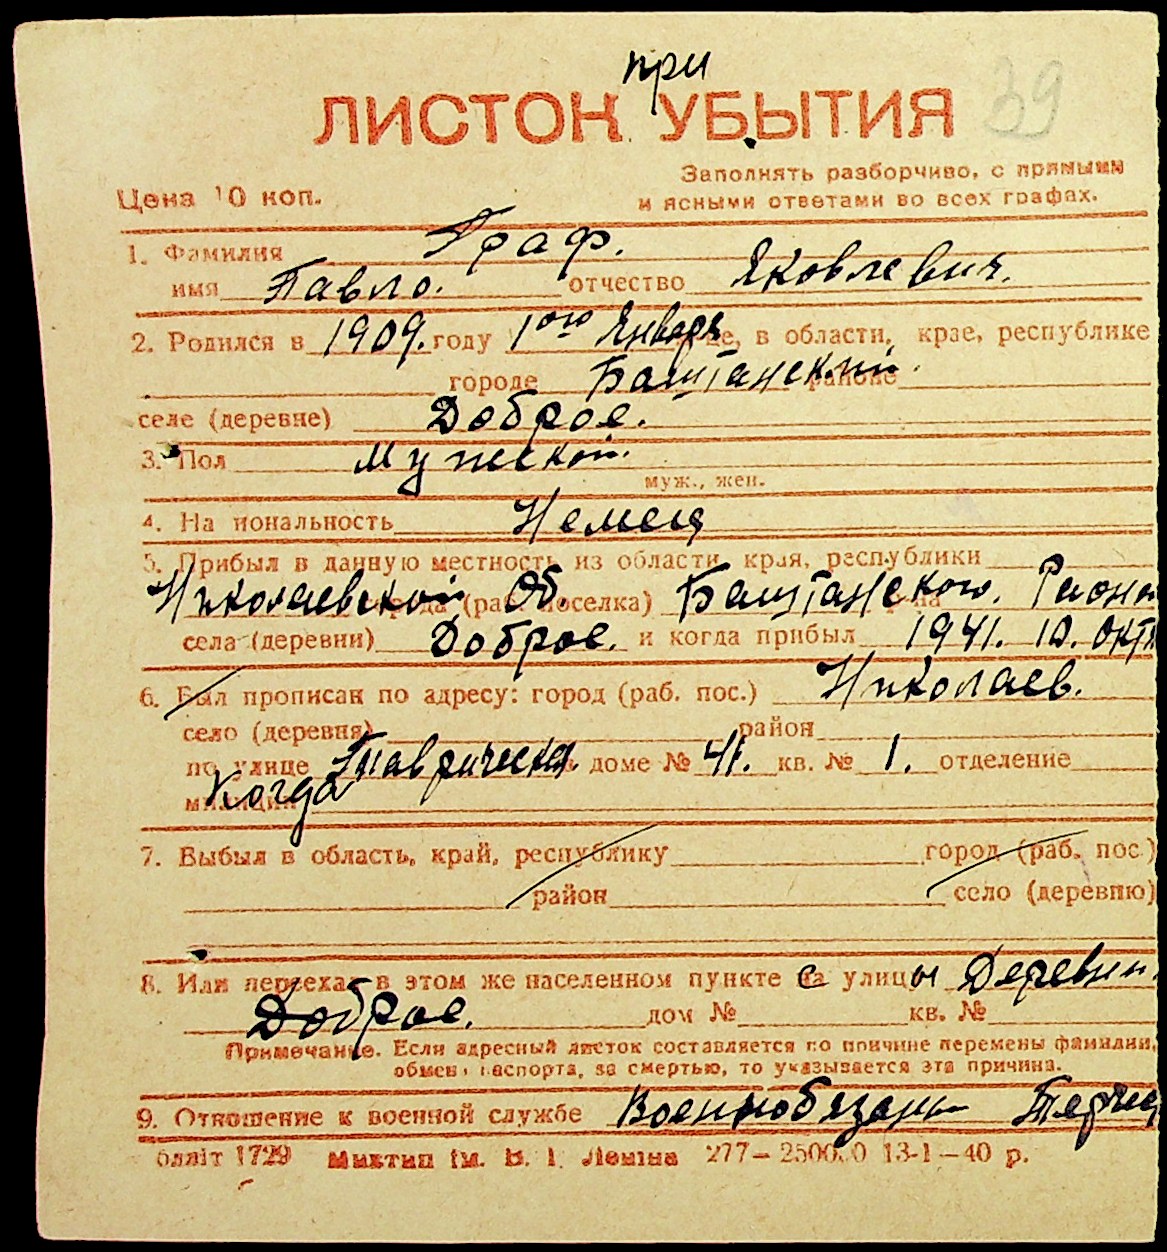 при
ЛИСТОК УБЫТИЯ 39
Заполнять разборчиво, с прямыми
Цена 10 коп. и ясными ответами во всех графах.
1. Фамилия Граф.
имя Павло. отчество Яковлевич.
2. Родился в 1909. году 1ого Января в области, крае, республике
городе Баштанский районе
селе (деревне) Доброе.
3. Пол Мужской.
муж., жен.
4. Национальность Немец
5. Прибыл в данную местность из области, края, республики
Николаевской Об. города (раб. поселка) Баштанского. Района
села (деревни) Доброе. и когда прибыл 1941. 10. окт
6. Был прописан по адресу: город (раб. пос.) Николаев.
село (деревня) район
по улице Таврическая. доме № 41. кв. № 1. отделение
милиции Когда
7. Выбыл в область, край, республику город (раб. пос.)
район село (деревню)
8. Или переехал в этом же населенном пункте с на улицы Деревни.
Доброе. дом № кв. №
Примечание. Если адресный листок составляется по причине перемены фамилии,
обмен паспорта, за смертью, то указывается эта причина.
9. Отношение к военной службе Военнобязан
обліт 1729 Миктип ім. В. І. Леніна 277—250000 13-1—40 р.